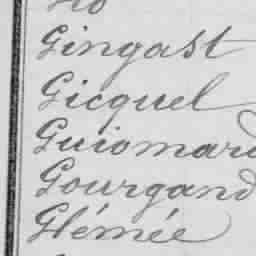 Gingast
Gicquel
Guiomard
Gourgand
Glémée